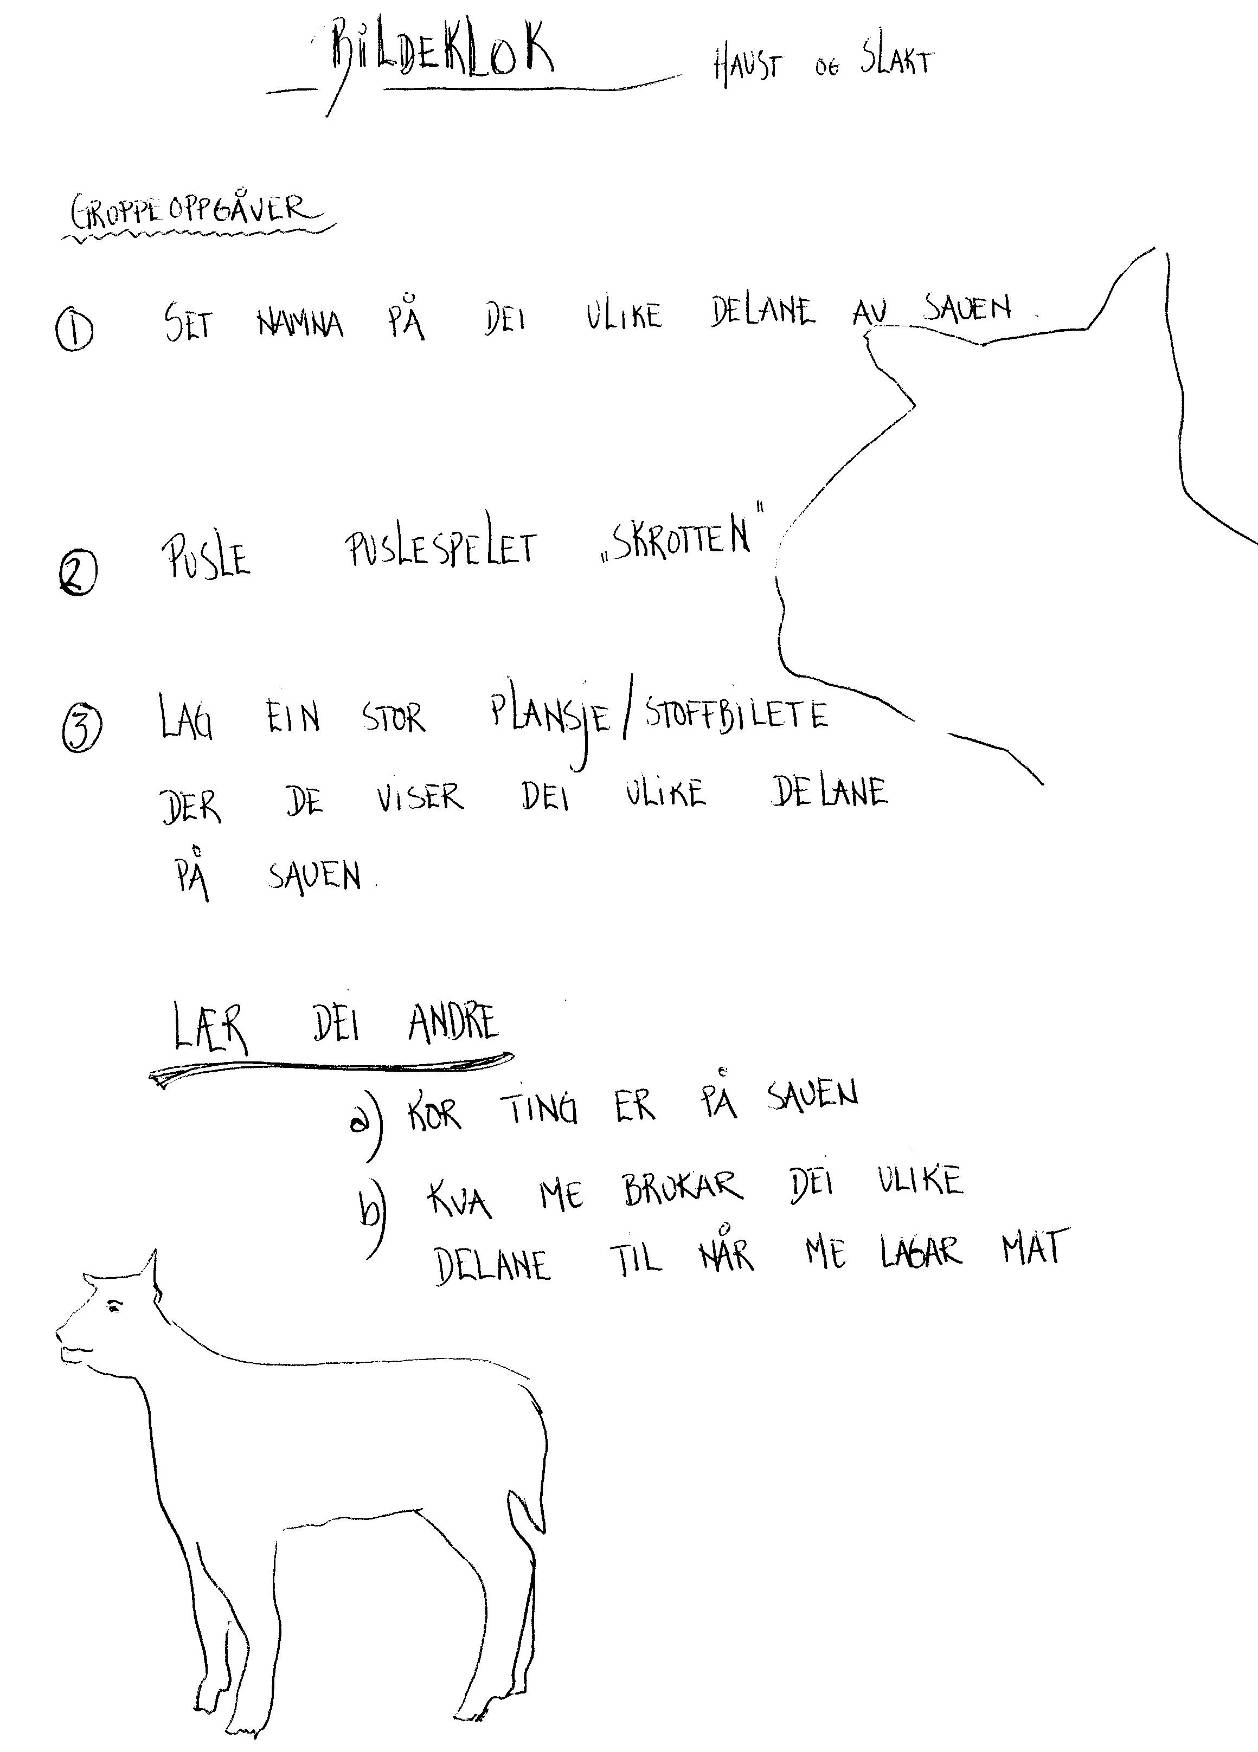 BILDEKLOK HAUST OG SLAKT
GROPPEOPPGÅVER
① SET NAMNA PÅ DEI ULIKE DELANE AV SAUEN.
② PUSLE PUSLESPELET „SKROTTEN"
③ LAG EIN STOR PLANSJE/STOFFBILETE
DER DE VISER DEI ULIKE DELANE
PÅ SAUEN.
LÆR DEI ANDRE
a) KOR TING ER PÅ SAUEN
b) KVA ME BRUKAR DEI ULIKE
DELANE TIL NÅR ME LAGAR MAT